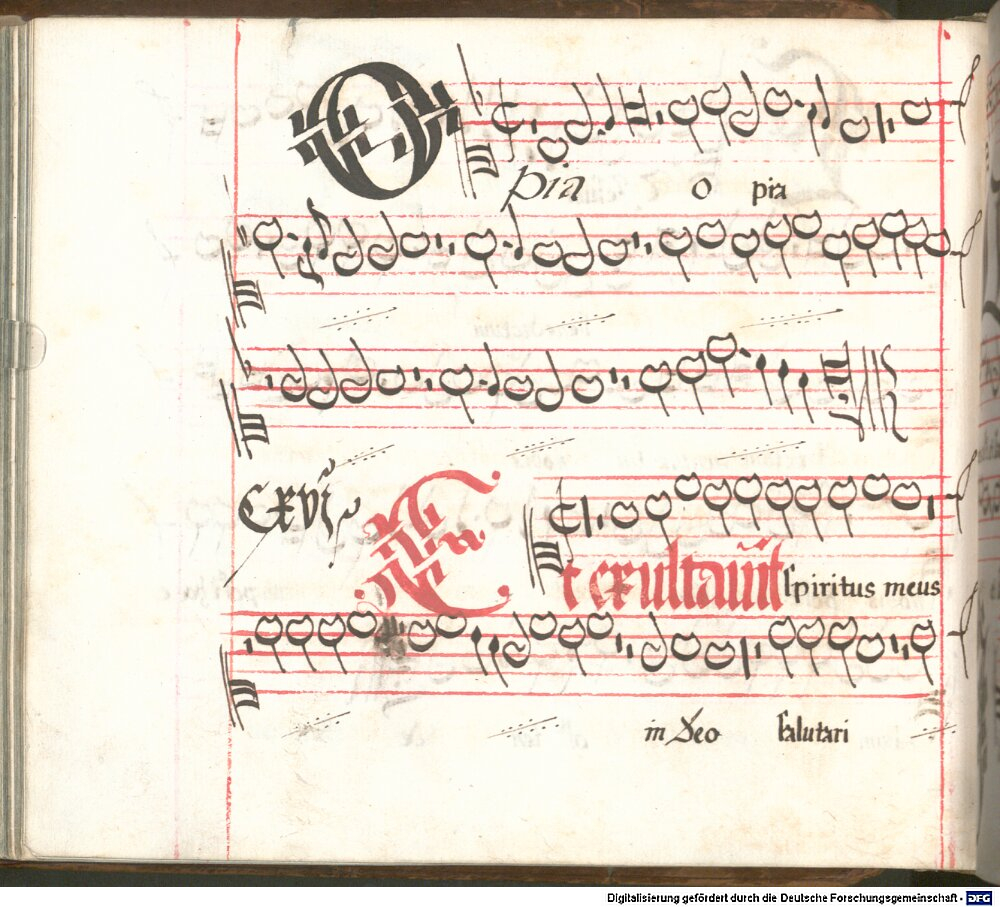 O pia o pia
CXVJ
Et exultauit spiritus meus
in Deo salutari
Digitalisierung gefördert durch die Deutsche Forschungsgemeinschaft - DFG